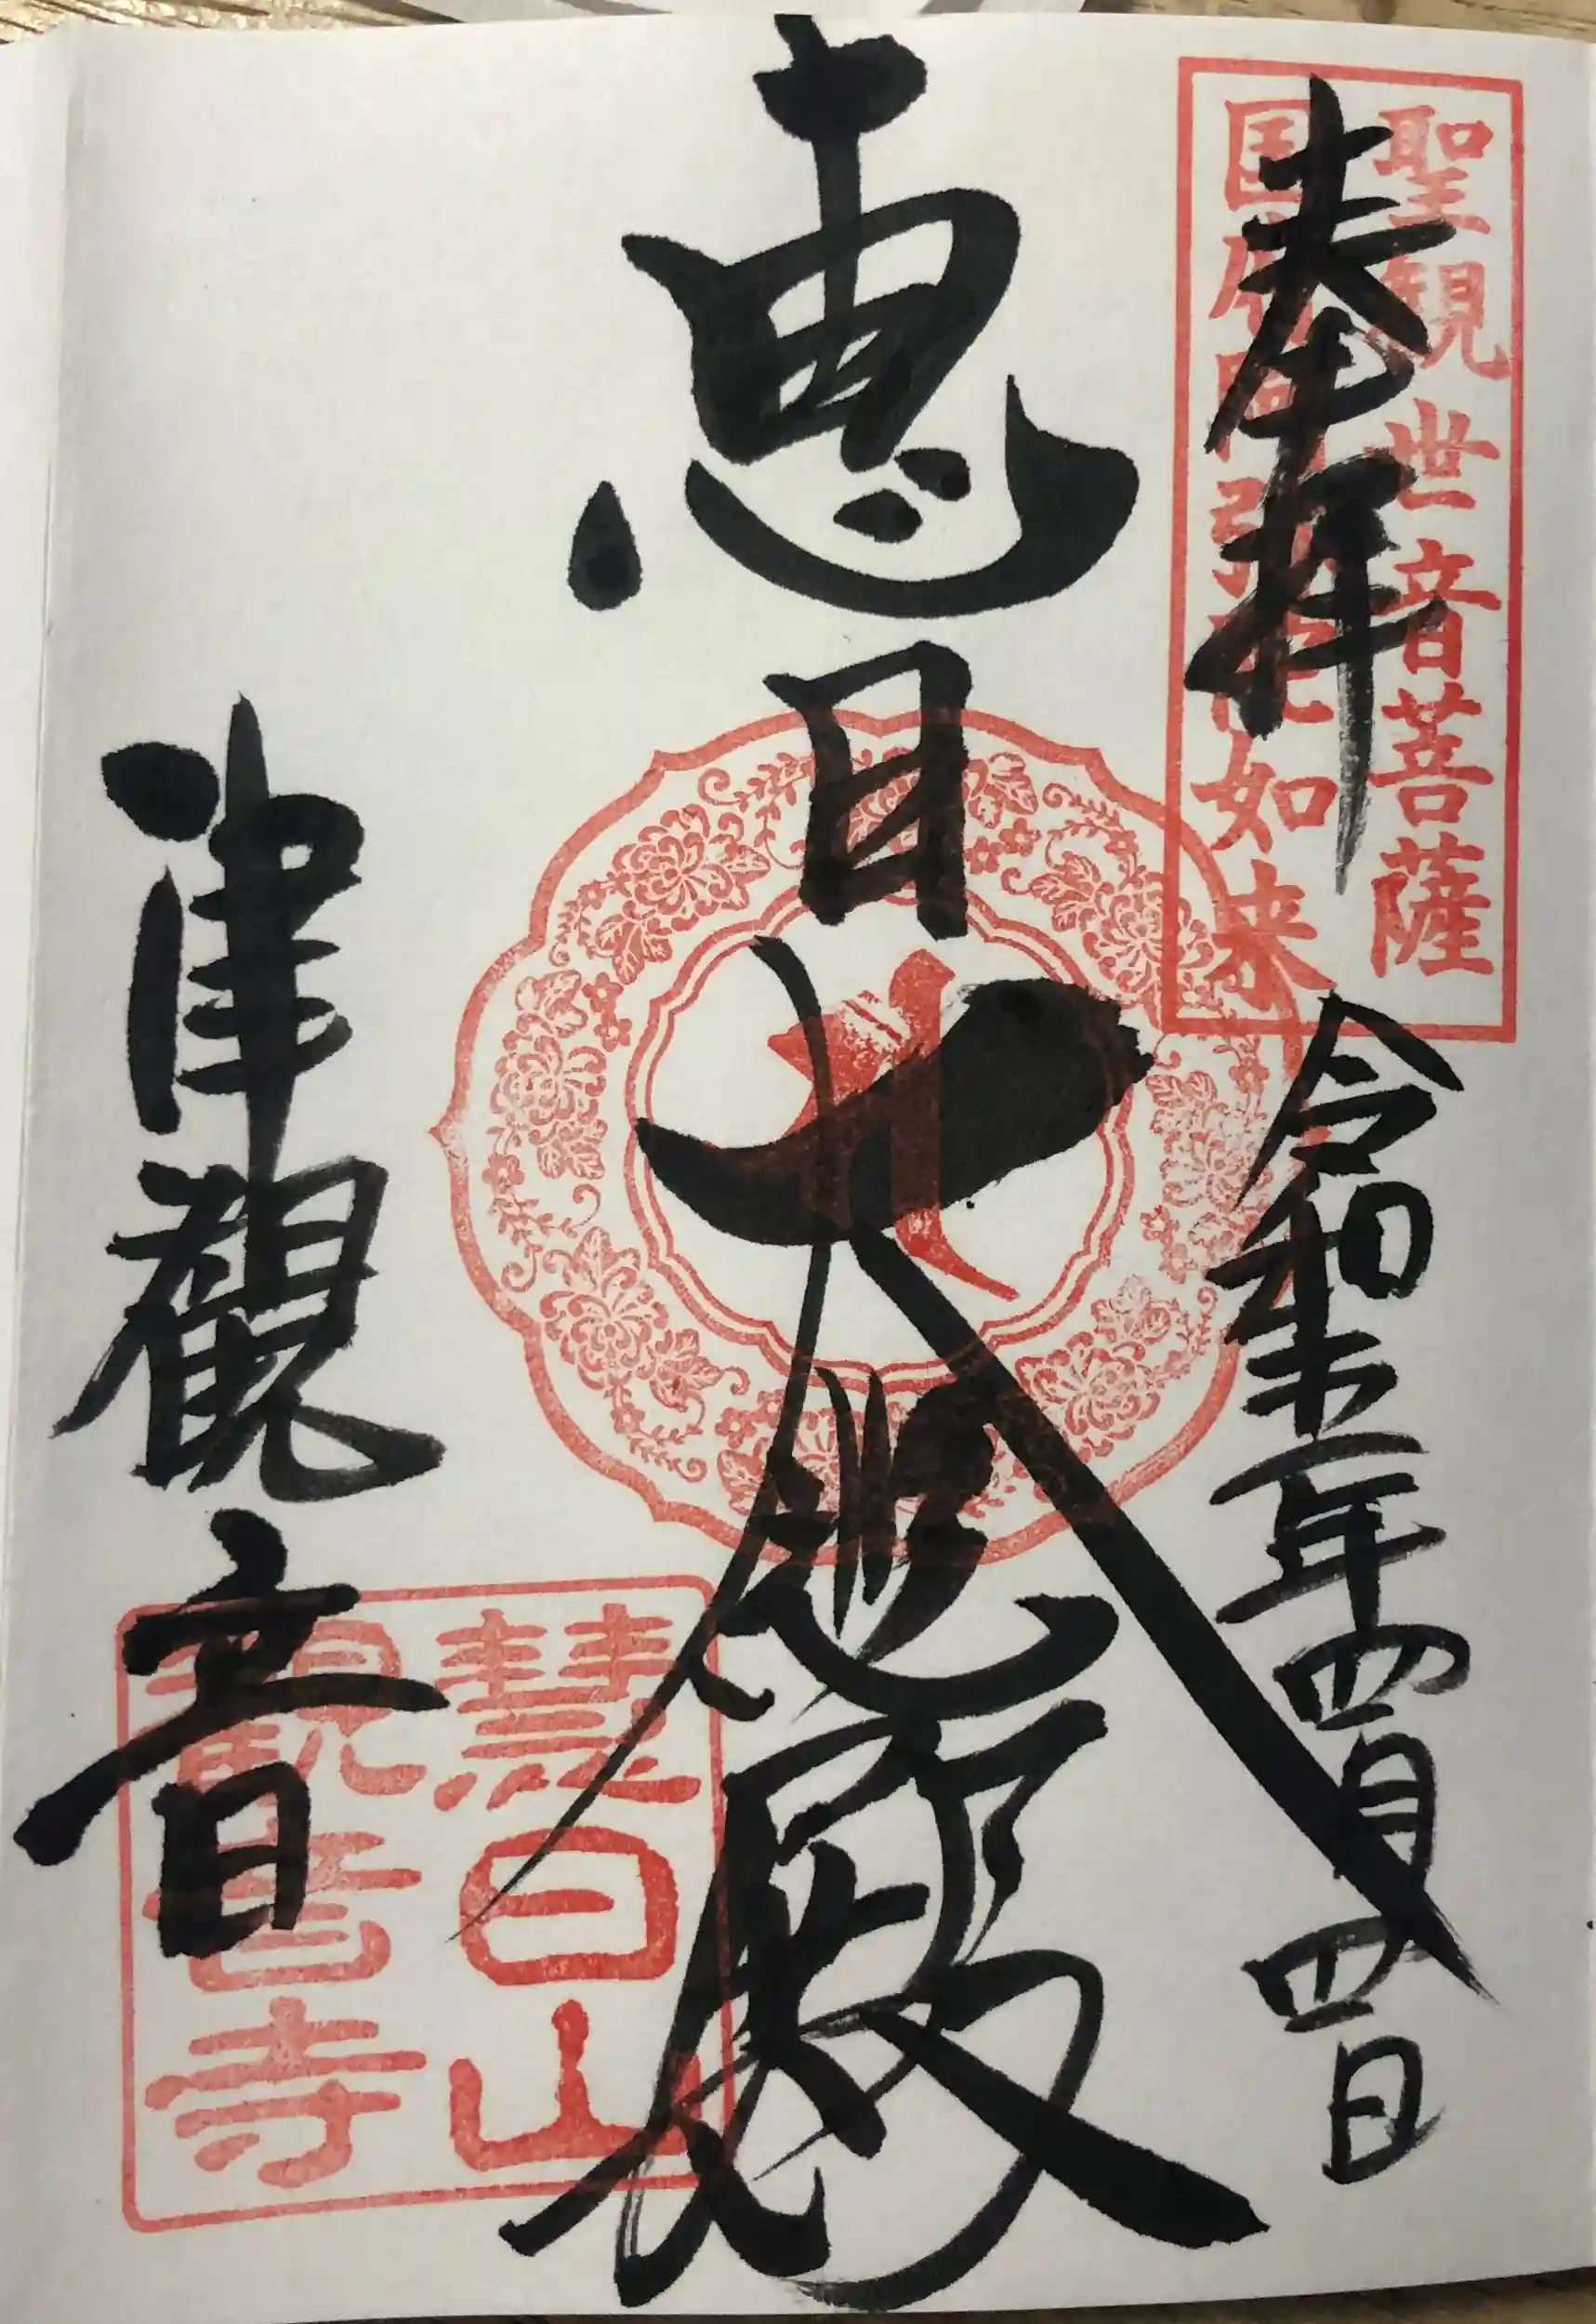 聖観世音菩薩
国府阿弥陀如来
奉拝
令和五年四月四日
恵日大悲殿
津觀音
慧日山
観音寺